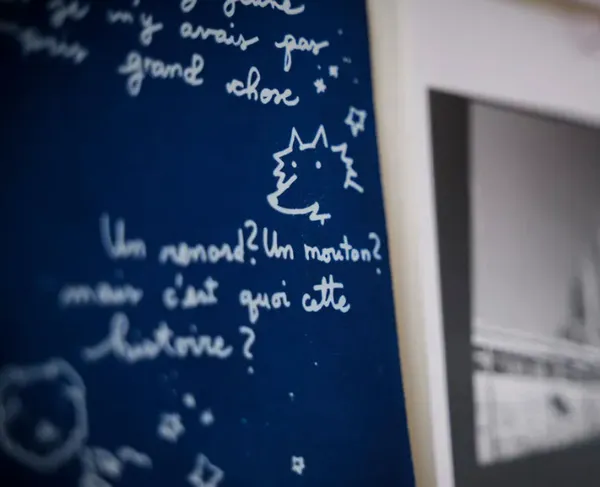 jeune
je m'y avais pas
pris grand chose
Un renard? Un mouton?
mais c'est quoi cette
histoire?